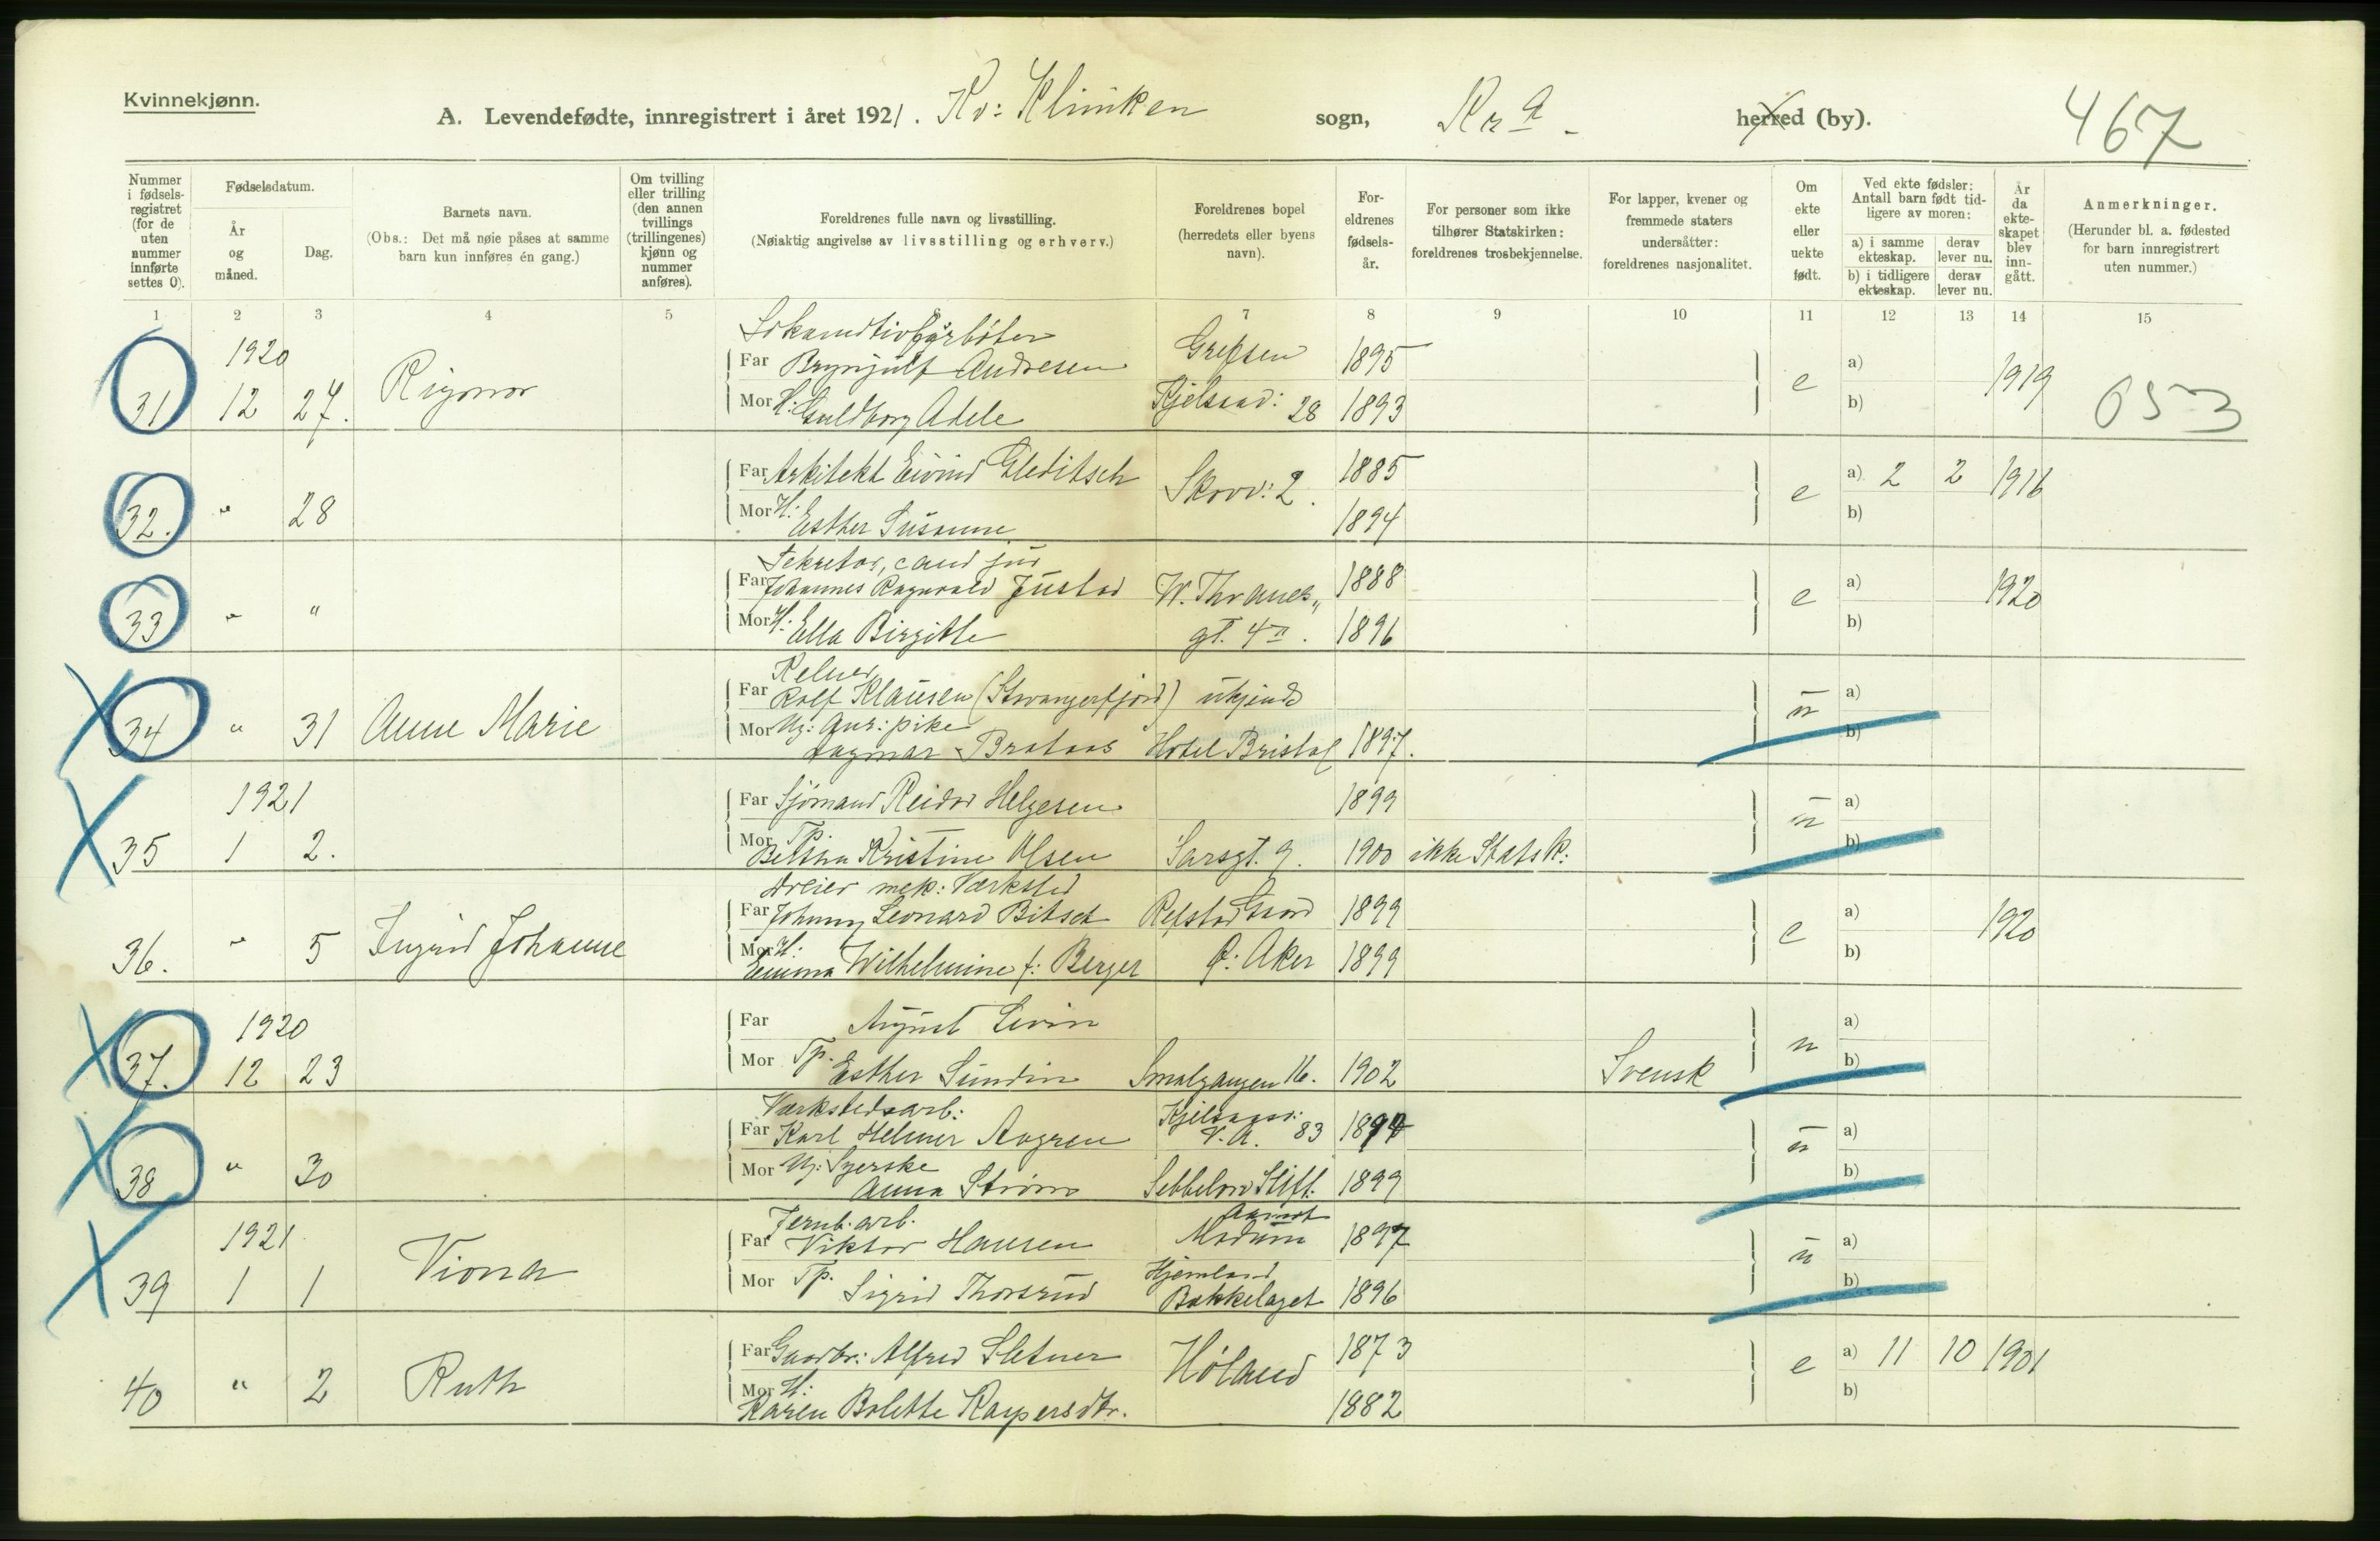 Kvinnekjønn.
A. Levendefødte, innregistrert i året 1921. Kv: Kliniken sogn, Kra herred (by).
467
Nummer i fødsels-registret (for de uten nummer innførte settes 0).
Fødselsdatum.
År og måned.
Dag.
Barnets navn.
(Obs.: Det må nøie påses at samme barn kun innføres én gang.)
Om tvilling eller trilling (den annen tvillings (trillingenes) kjønn og nummer anføres).
Foreldrenes fulle navn og livsstilling.
(Nøiaktig angivelse av livsstilling og erhverv.)
Foreldrenes bopel (herredets eller byens navn).
For-eldrenes fødsels-år.
For personer som ikke tilhører Statskirken: foreldrenes trosbekjennelse.
For lapper, kvener og fremmede staters undersåtter: foreldrenes nasjonalitet.
Om ekte eller uekte født.
Ved ekte fødsler: Antall barn født tid-ligere av moren:
a) i samme ekteskap. derav lever nu.
b) i tidligere ekteskap. derav lever nu.
År da ekte-skapet blev inn-gått.
Anmerkninger.
(Herunder bl. a. fødested for barn innregistrert uten nummer.)
1 2 3 4 5 7 8 9 10 11 12 13 14 15
Lokomotivfyrbøter
1920
Far Brynjulf Andresen Grefsen 1895 a)
31 12 27. Rigmor e 1919 053
Mor H: Guldborg Adele Kjelsaasv: 28 1893 b)
Far Arkitekt Eivind Gleditsch 1885 a) 2 2 1916
32. " 28 Skovv: 2. e
Mor H: Esther Susanne 1894 b)
Sekretær, cand jur
Far Johannes Ragnvald Justad W. Thranes 1888 a)
33 " " e 1920
Mor H: Ella Birgitte gt. 4 II. 1896 b)
Kelner
Far Rolf Klausen (Stavangerfjord) ukjendt a)
34 " 31 Anne Marie u
Mor Ug: Anr: pike
Dagmar Brataas Hotel Bristol 1897. b)
1921
Far Sjømand Reidar Helgesen 1899 a)
35 1 2. u
Mor Tp.
Betsina Kristine Olsen Sarsgt. 9. 1900 ikke Statsk: b)
Dreier mek: Værksted
Far Johnny Leonard Bitsch Refstad 1899 a)
36. " 5 Ingrid Johanne e 1920
Mor H:
Emma Wilhelmine f: Berger Ø: Aker 1899 b)
1920
Far August Levin a)
37. 12 23 u
Mor Tp. Esther Sundin Smalgangen 16. 1902 Svensk b)
Værkstedsarb:
Far Karl Helmer Aagren Kjelsaasv: V. A. 83 1894 a)
38 " 30 u
Mor Ug: Syerske
Anna Strøm Sebbelows Stift. 1899 b)
Jernb. arb.
1921
Far Viktor Hansen Modum 1897 a)
39 1 1 Viona u
Mor Tp. Sigrid Thorsrud Bakkelaget 1896 b)
Far Gaardbr: Alfred Sletner 1873 a) 11 10 1901
40 " 2 Ruth Høland e
Mor H:
Karen Bolette Kaspersdtr. 1882 b)